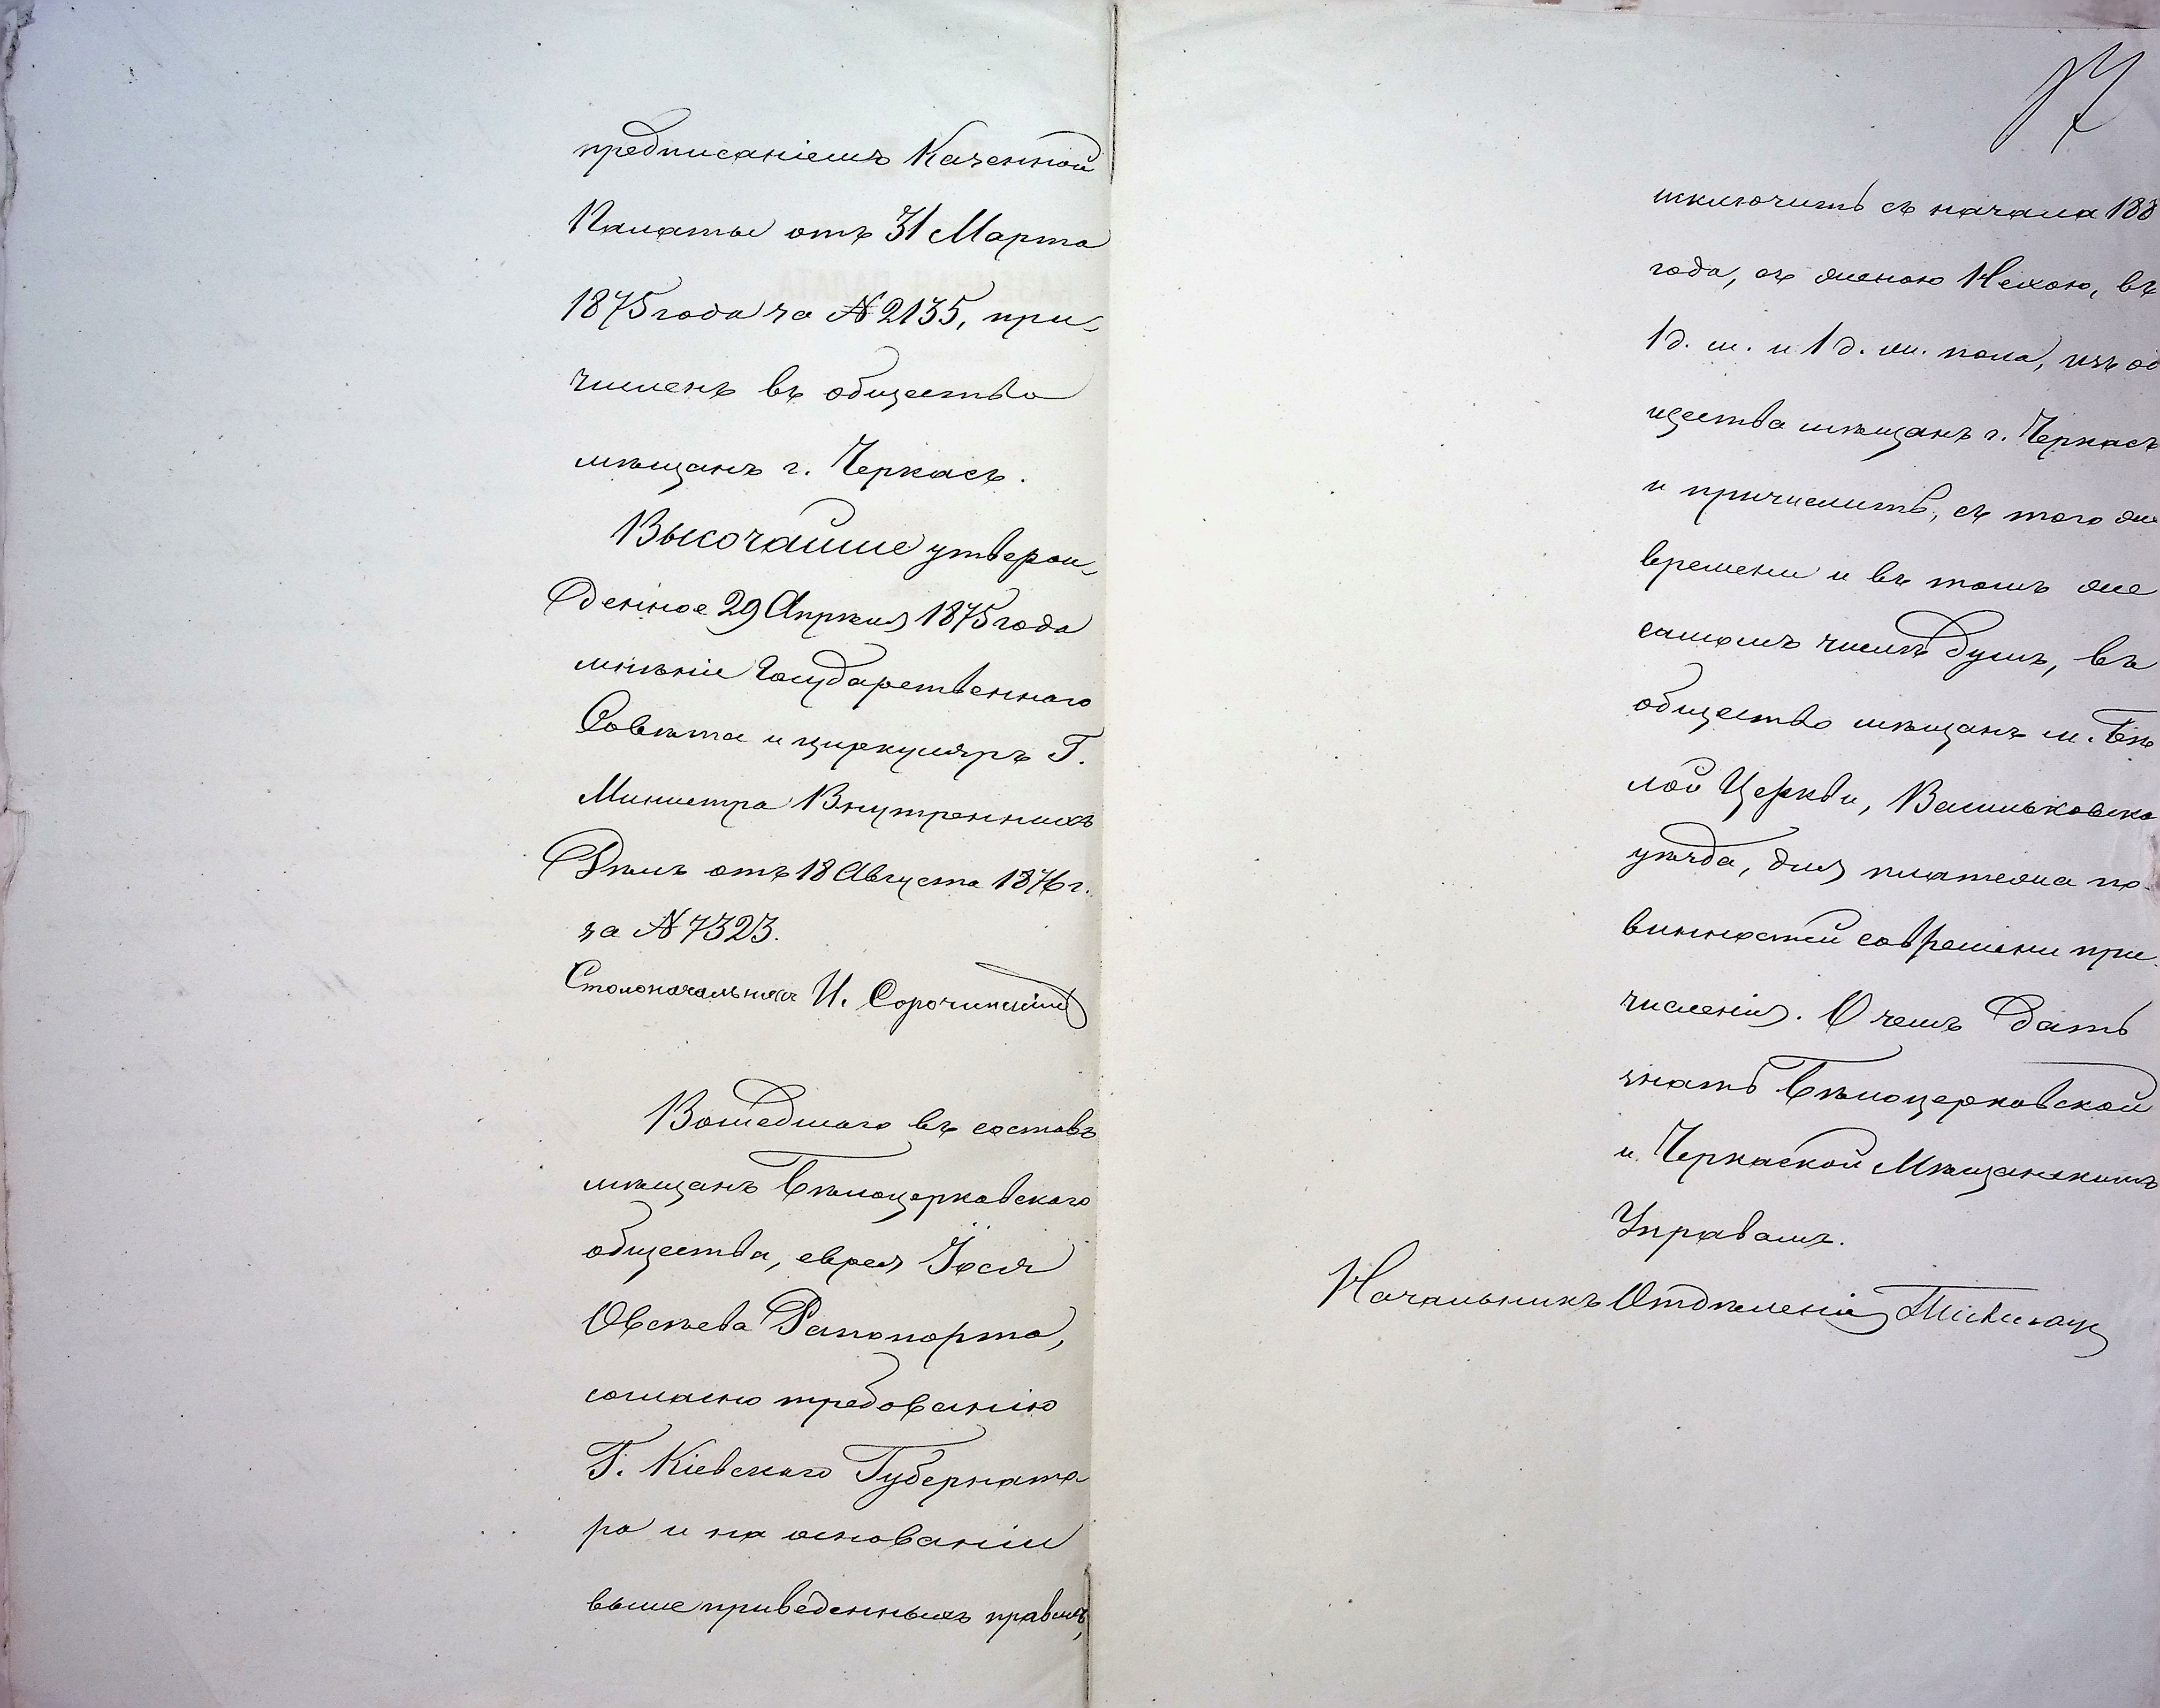 предписаніемъ Казенной
Палаты отъ 31 Марта
1875 года за № 2135, при-
численъ въ общество
мѣщанъ г. Черкасъ.
Высочайше утверж-
денное 29 Апрѣля 1875 года
мнѣніе Государственнаго
Совѣта и циркуляръ Г.
Министра Внутреннихъ
Дѣлъ отъ 18 Августа 1876 г.
за № 7323.
Столоначальникъ И. Сорочинскій
Вошедшаго въ составъ
мѣщанъ Бѣлоцерковскаго
общества, еврея Іося
Овсѣева Рапопорта,
согласно требованію
Г. Кіевскаго Губернато
ра и на основаніи
выше приведенныхъ правилъ,
17
исключить съ начала 188
года, съ женою Нехою, въ
1 д. м. и 1 д. ж. пола, изъ об
щества мѣщанъ г. Черкасъ
и причислить, съ того же
времени и въ томъ же
самомъ числѣ душъ, въ
общество мѣщанъ м. Бѣ
лой Церкви, Васильковско
уѣзда, для платежа по-
винностей современи при-
численія. О чемъ дать
знать Бѣлоцерковской
и Черкаской Мѣщанскимъ
Управамъ.
Начальникъ Отдѣленія